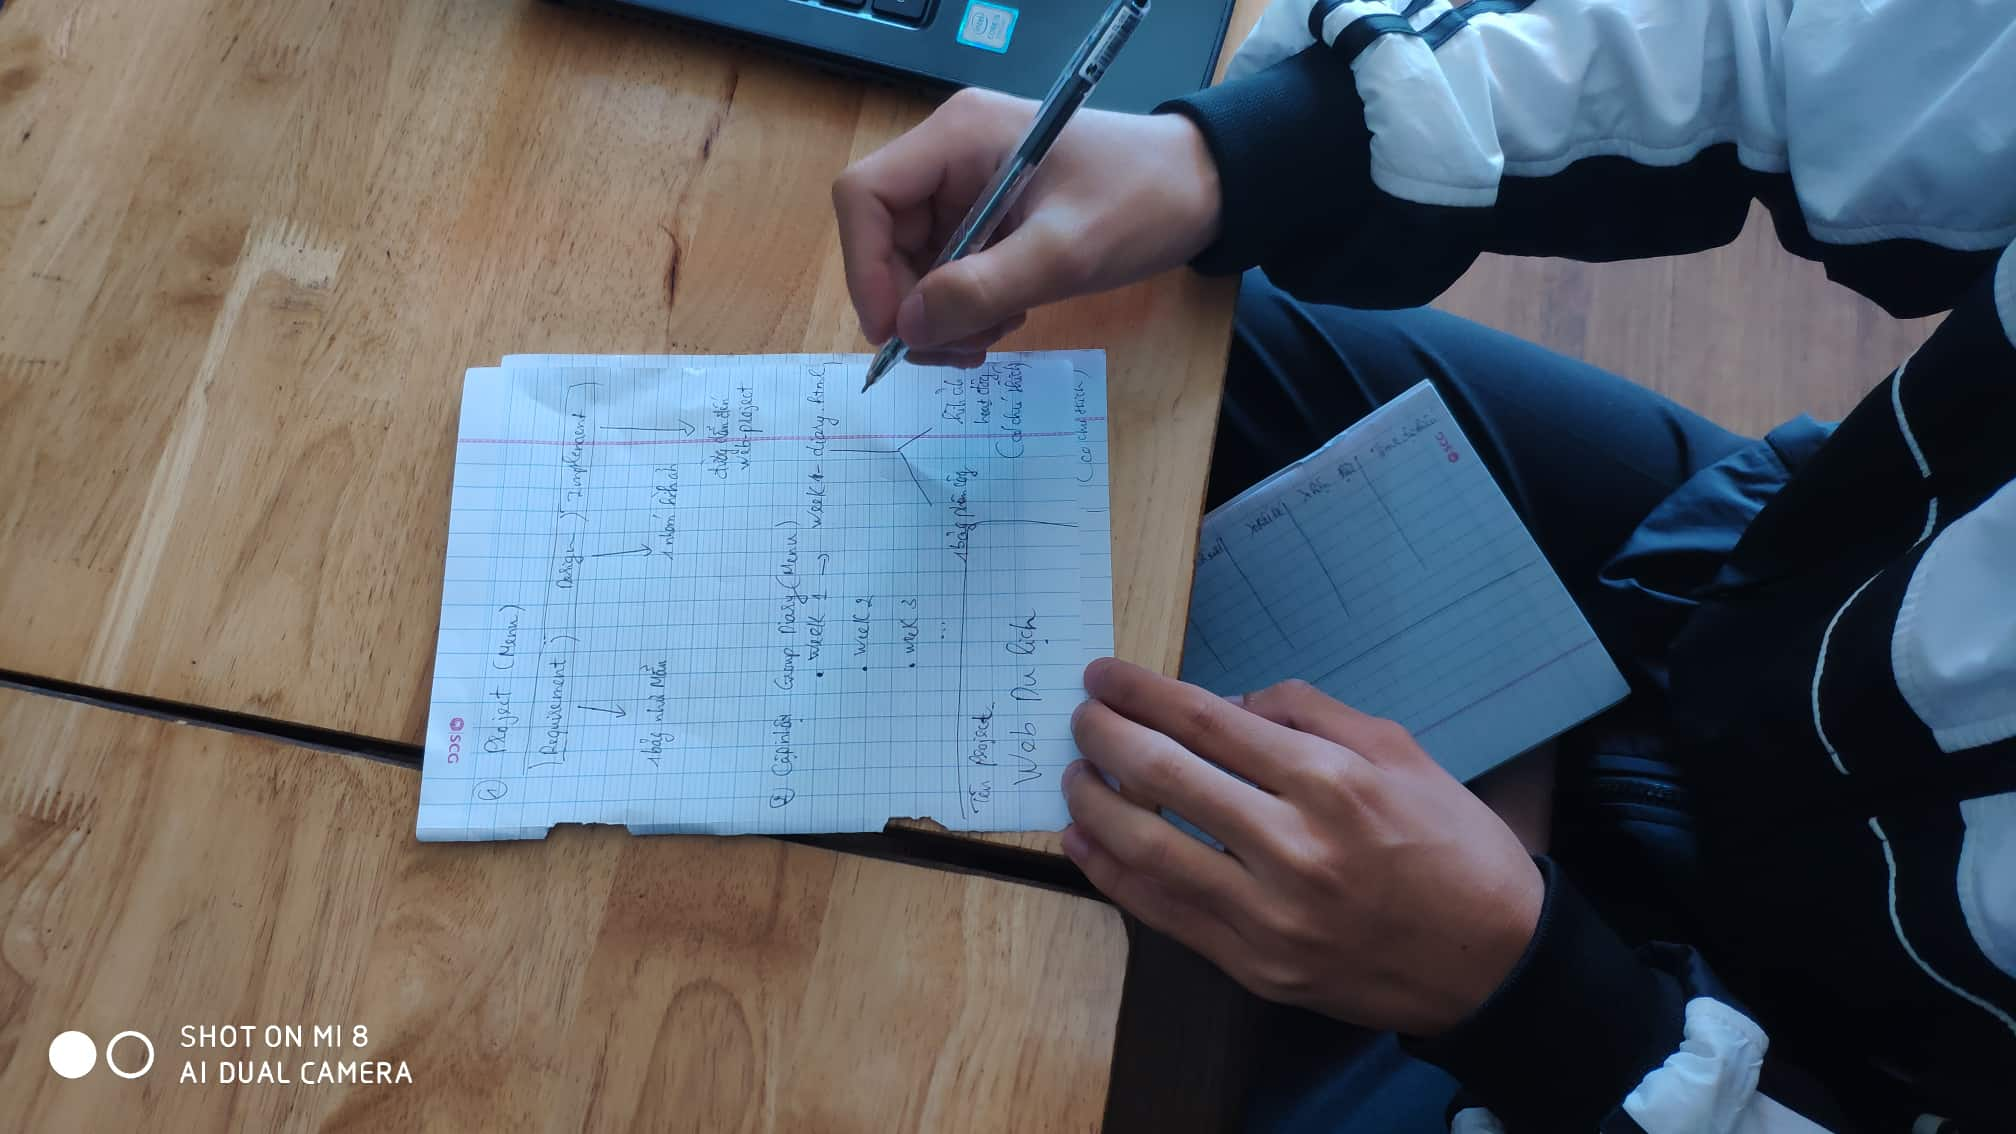 SCG
① Project (Menu)
Requirement) Design) Implement)
1 bảng nhu cầu
1 nhóm hình ảnh
đường dẫn đến
web-project
② Cập nhật Group Diary (Menu)
• week 1 → week1-diary.html
• week 2
• week 3
...
1 bảng phân công
hình ảnh
hoạt động
(có chú thích)
(có chú thích)
Tên project
Web Du lịch
SCG
intel
CORE i5
SHOT ON MI 8
AI DUAL CAMERA